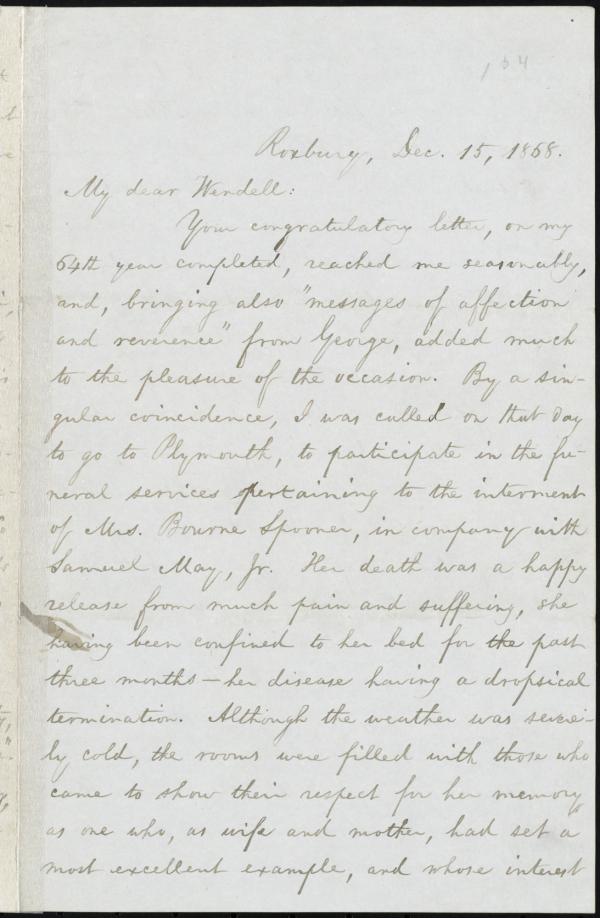 104
Roxbury, Dec. 15, 1868.
My dear Wendell:
Your congratulatory letter, on my
64th year completed, reached me seasonably,
and, bringing also "messages of affection
and reverence" from George, added much
to the pleasure of the occasion. By a sin-
gular coincidence, I was called on that day
to go to Plymouth, to participate in the fu-
neral services pertaining to the interment
of Mrs. Bourne Spooner, in company with
Samuel May, Jr. Her death was a happy
release from much pain and suffering, she
having been confined to her bed for the past
three months — her disease having a dropsical
termination. Although the weather was severe-
ly cold, the rooms were filled with those who
came to show their respect for her memory
as one who, as wife and mother, had set a
most excellent example, and whose interest